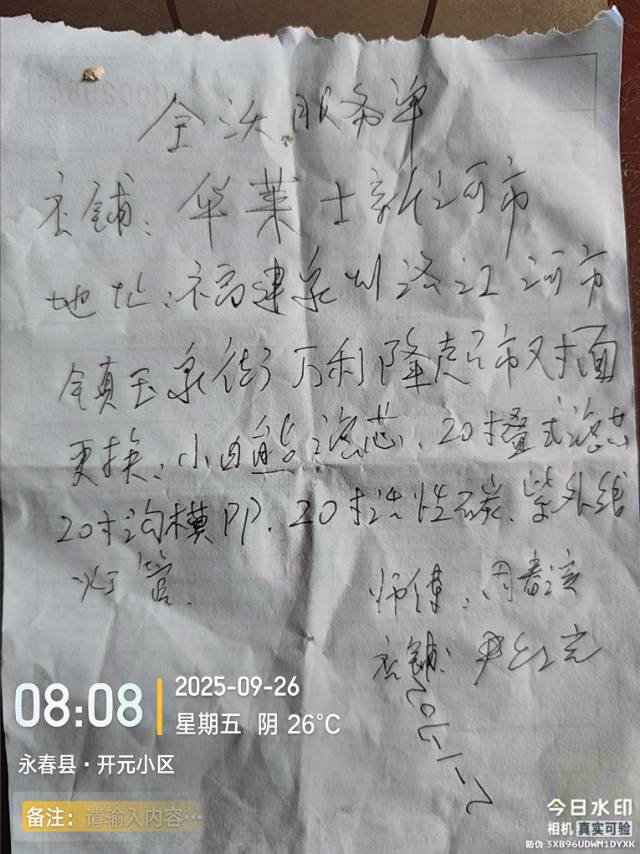 全沃服务单
店铺：华莱士新河市
地址：福建泉州洛江河市
镇玉泉街万利隆超市对面
更换：小白熊滤芯、20寸叠式滤芯
20寸沟模PP、20寸活性碳、紫外线
灯管.
师傅：周春
店铺：尹红
08:08
2025-09-26
星期五 阴 26°C
永春县·开元小区
备注：请输入内容…
今日水印
相机 真实可验
防伪 3XB96UDWM1DYXK